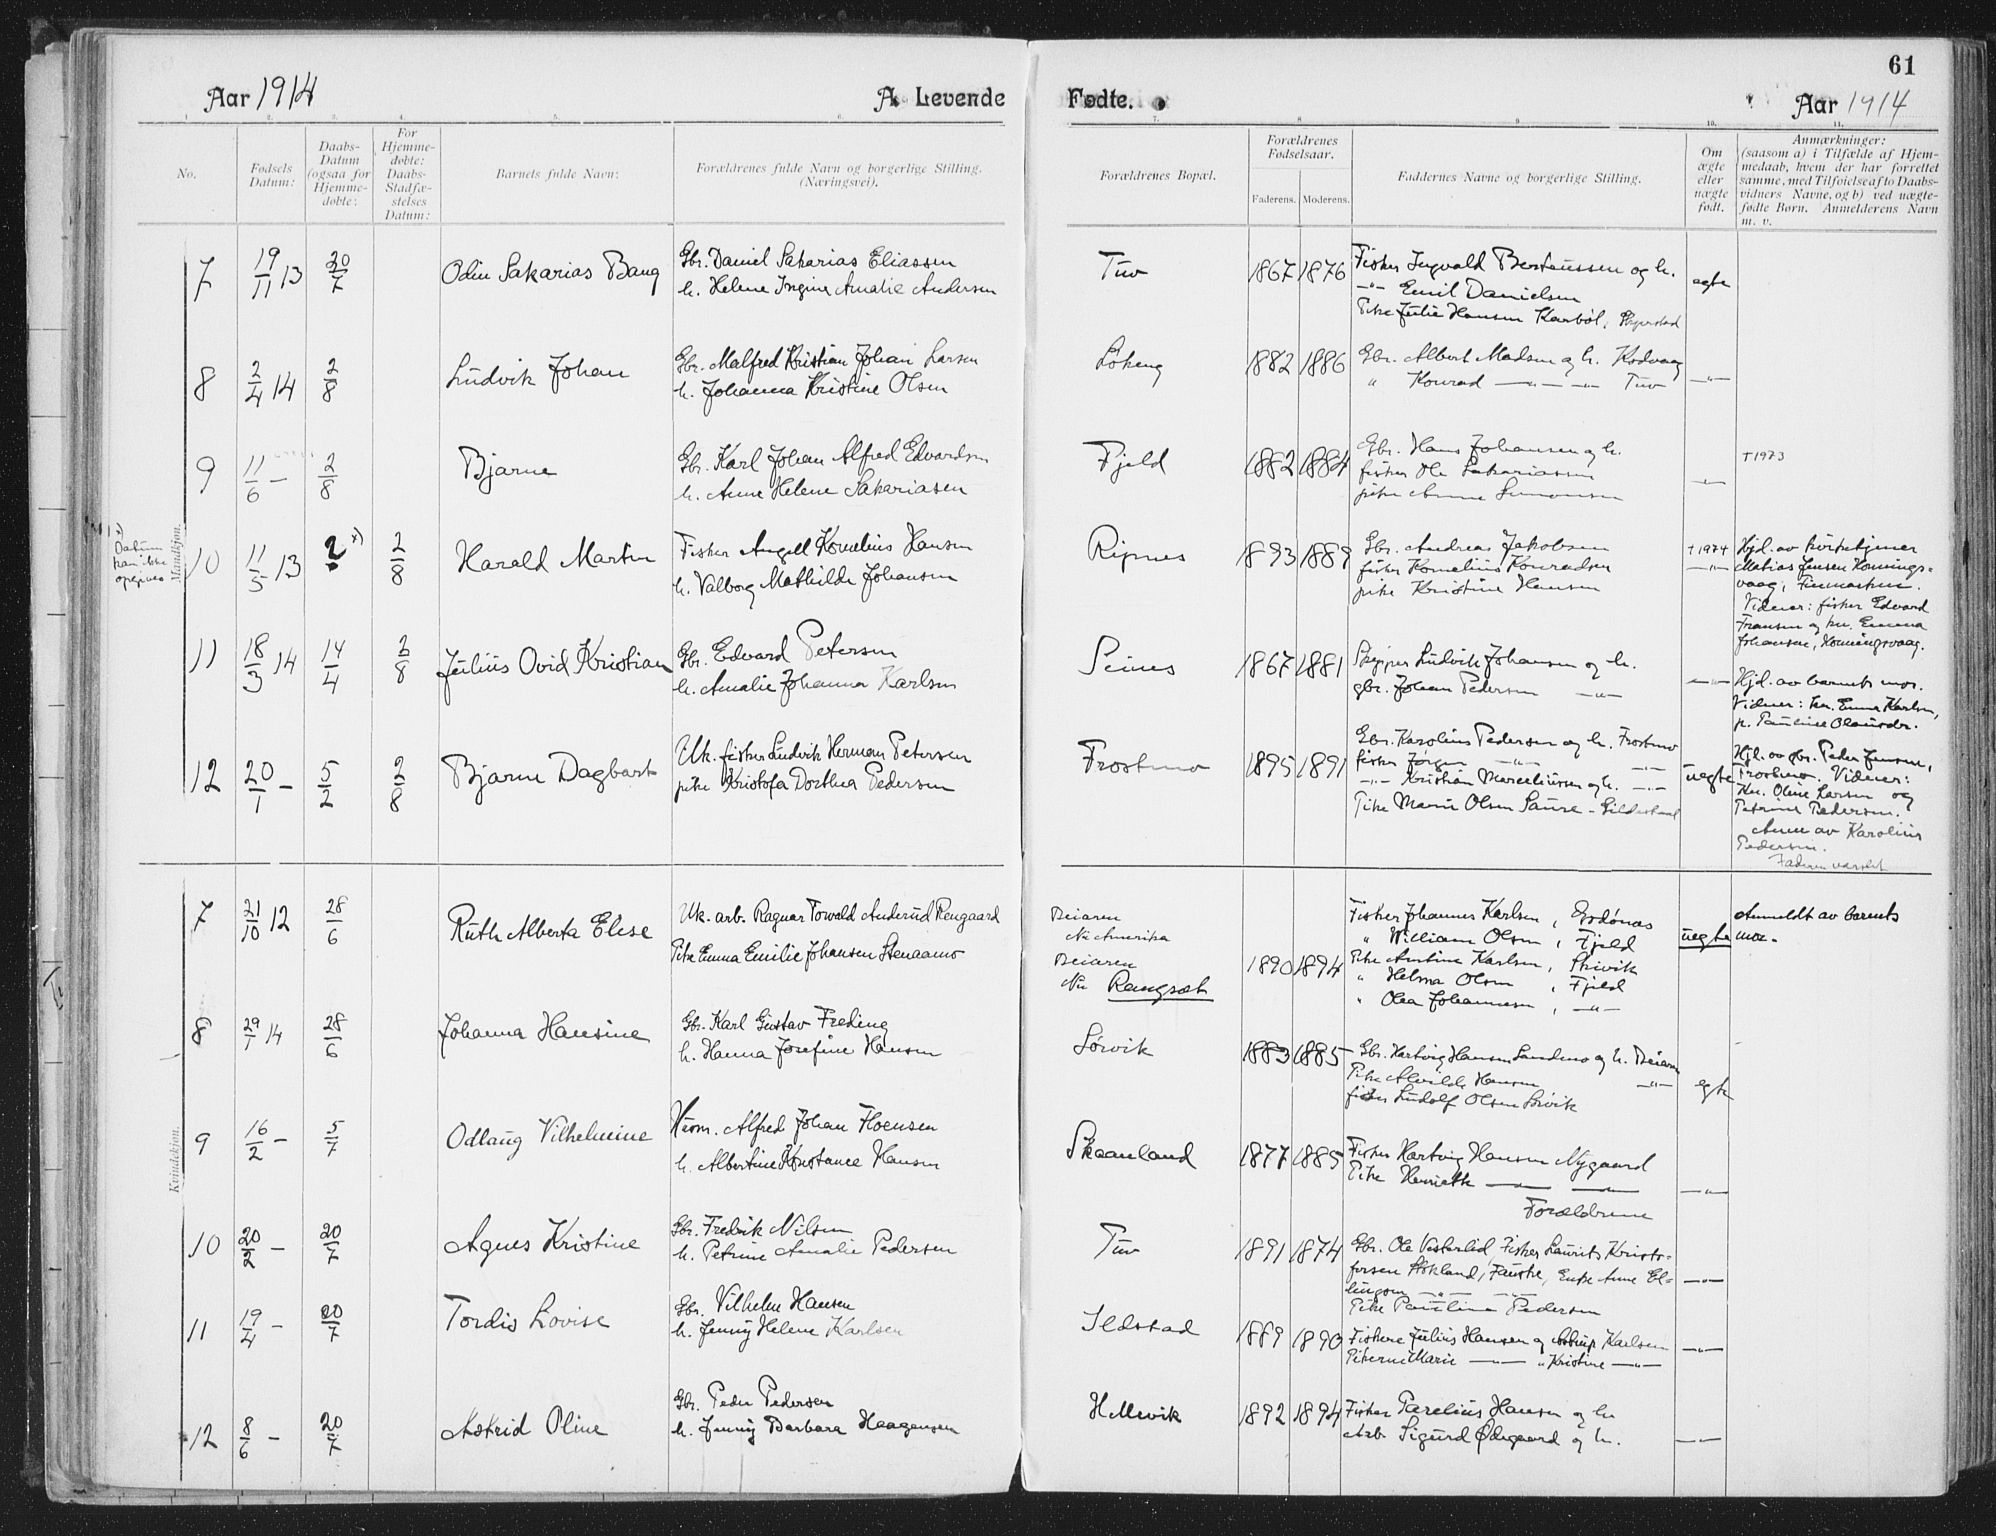 61
Aar 1914
A. Levende
Fødte.
Aar 1914
No.
Fødsels Datum:
Daabs-Datum (ogsaa for Hjemmedøbte:
For Hjemmedøbte: Daabs-Stadfæstelses Datum:
Barnets fulde Navn:
Forældrenes fulde Navn og borgerlige Stilling. (Næringsvei).
Forældrenes Bopæl.
Forældrenes Fødselsaar.
Faderens. Moderens.
Faddernes Navne og borgerlige Stilling.
Om ægte eller uægte født.
Anmærkninger: (saasom a) i Tilfælde af Hjemmedaab, hvem der har forrettet samme, med Tilføielse af to Daabsvidners Navne, og b) ved uægtefødte Børn. Anmelderens Navn m. v.
Mandkjøn.
7 19/11 13 20/7 Odin Sakarias Bang
Gbr. Daniel Sakarias Eliassen
h. Helene Ingine Amalie Andersen
Tuv 1867 1876
Fisker Ingvald Berteussen og h.
-"- Emil Danielsen
Pike Julie Hansen Karbøl,
egte
8 2/4 14 2/8 Ludvik Johan
Gbr. Malfred Kristian Johan Larsen
h. Johanna Kristine Olsen
Løkeng 1882 1886
Gbr. Albert Madsen og h. Kodvaag
" Konrad -"- -"- Tuv
-"-
9 11/6 - 2/8 Bjarne
Gbr. Karl Johan Alfred Edvardsen
h. Anne Helene Sakariasen
Fjeld 1882 1884
Gbr. Hans Johansen og h.
fisker Ole Sakariassen
pike Anna Simonsen
-"-
†1973
x) Datum kan ikke opgives
10 11/5 13 ? x) 2/8 Harald Martin
Fisker Angell Kornelius Hansen
h. Valborg Mathilde Johansen
Ripnes 1893 1889
Gbr. Andreas Jakobsen
fisker Kornelius Konradsen
pike Kristine Hansen
†1974
-"-
Hjd. av kirketjener
Matias Jensen Honnings=
vaag, Finmarken.
Vidner: fisker Edvard
Fransen og kn. Emma
Johansen, Honningsvaag.
11 18/3 14 14/4 2/8 Julius Ovid Kristian
Gbr. Edvard Petersen
h. Amalie Johanna Karlsen
Seines 1867 1881
Skipper Ludvik Johansen og h.
gbr. Johan Pedersen -"-
-"-
Hjd. av barnets mor.
Vidner: kn. Emma Karlsen,
p. Pauline Olausdr.
12 20/1 - 5/2 2/8 Bjarne Dagbart
Uk. fisker Ludvik Herman Petersen
pike Kristofa Dorthea Pedersen
Frostmo 1895 1891
Gbr. Karolius Pedersen og h. Frostmo
fisker Jørgen -"- -"-
-"- Kristian Marceliussen og h. -"-
Pike Marie Olsen Saure - Gildeskaal
uegte
Hjd. av gbr. Peder Jensen,
Frostmo. Vidner:
Kn. Oline Larsen og
Petrine Pedersen.
Anm. av Karolius
Pedersen.
Faderen varslet
Kvindekjøn.
7 21/10 12 28/6 Ruth Alberta Elise
Uk. arb. Ragnar Torvald Anderud Rengaard
Pike Emma Emilie Johansen Stenaamo
Beiaren
Nu Amerika
Beiaren
Nu Rengset
1890 1894
Fisker Johannes Karlsen,
" William Olsen, Fjeld
Pike Antine Karlsen, Skivik
" Helma Olsen, Fjeld
" Olea Johannesen, -"-
uegte
Anmeldt av barnets
mor.
8 29/1 14 28/6 Johanna Hansine
Gbr. Karl Gustav Freding
h. Hanna Josefine Hansen
Sørvik 1883 1885
Gbr. Hartvig Hansen Sandmo og h. Beiarn
Pike Alvilde Hansen -"-
fisker Ludolf Olsen Sørvik
egte
9 16/2 - 5/7 Odlaug Vilhelmine
Husm. Alfred Johan Floensen
h. Albertine Konstance Hansen
Skaanland 1877 1885
Fisker Hartvig Hansen Nygaard
Pike Henriette -"- -"-
Forældrene
-"-
10 20/2 - 20/7 Agnes Kristine
Gbr. Fredrik Nilsen
h. Petrine Amalie Pedersen
Tuv 1891 1874
Gbr. Ole Vesterlid, Fisker Laurits Kristo=
fersen Stokland, Fauske, Enke Anne El=
lingsen -"- -"-
Pike Paulina Pedersen
-"-
11 19/4 - 20/7 Tordis Lovise
Gbr. Vilhelm Hansen
h. Jenny Helene Karlsen
Ildstad 1889 1890
Fiskere Julius Hansen og Astrup Karlsen
Pikerne Marie -"- " Kristine -"-
-"-
12 8/6 - 20/7 Astrid Oline
Gbr. Peder Pedersen
h. Jenny Barbara Haagensen
Hellevik 1892 1894
Fisker Parelius Hansen og h.
Arb. Sigurd Ødegaard og h.
-"-